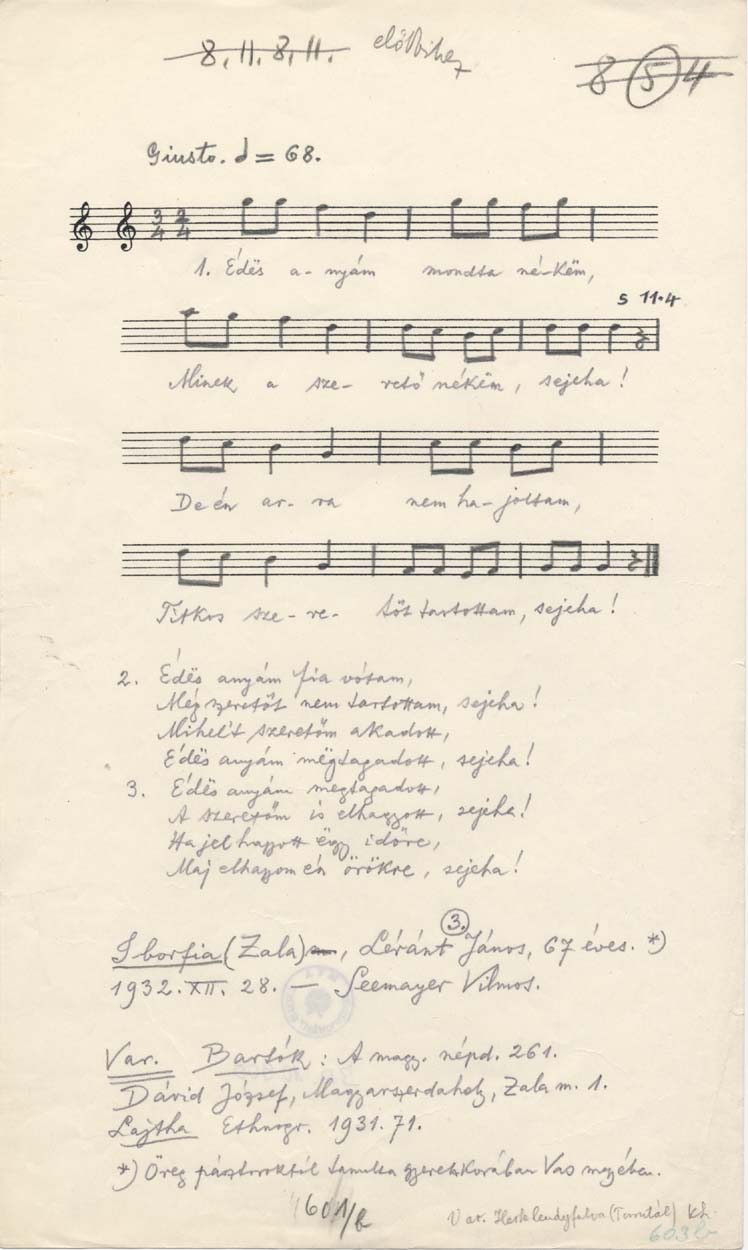 8. 11. 8. 11. előbbihez
8 5 4
Giusto. = 68.
3/4 2/4
1. Édës a- nyám mondta né-këm,
5 11.4
Minek a sze- rető nékëm, sejeha!
De én ar- ra nem ha- joltam,
Titkos sze- re- tőt tartottam, sejeha!
2. Édës anyám fia vótam,
Még szeretőt nem tartottam, sejeha!
Mihelt szeretőm akadott,
Édës anyám mëgtagadott, sejeha!
3. Édës anyám megtagadott,
A szeretőm is elhagyott, sejeha!
Ha jel hagyott ëgy időre,
Maj elhagyom én örökre, sejeha!
3.
Iborfia (Zala), Léránt János, 67 éves. *)
1932. XII. 28. — Seemayer Vilmos.
Var. Bartók: A magy. népd. 261.
Dávid József, Magyarszerdahely, Zala m. 1.
Lajtha Ethnogr. 1931. 71.
*) Öreg pásztoroktól tanulta gyerekkorában Vas megyében.
601/b
Var. Hertelendyfalva (Torontál) Kh.
603b